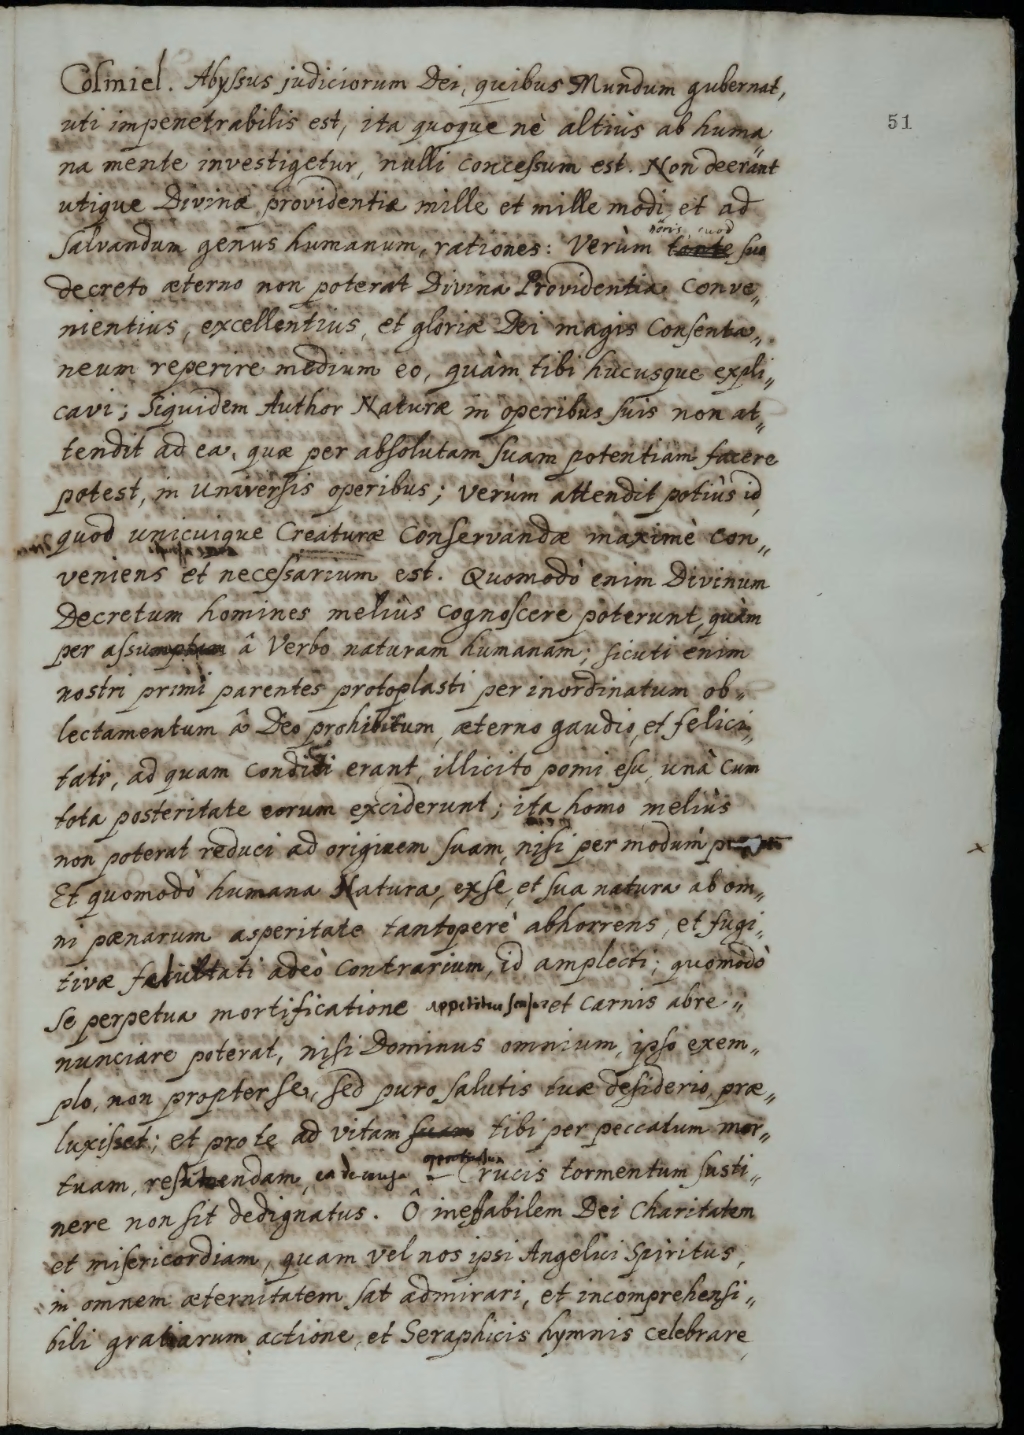 51
Cosmiel. Abyssus judiciorum Dei, quibus Mundum gubernat,
uti impenetrabilis est, ita quoque nè altiùs ab huma„
na mente investigetur, nulli concessum est. Non deerant
utique Divinæ providentiæ mille et mille modi, et ad
salvandum genus humanum, rationes: Verùm tante suo
decreto æterno non poterat Divina Providentia conve„
nientius, excellentius, et gloriæ Dei magis consenta„
neum reperire medium eo, quàm tibi hucusque expli„
cavi; siquidem Author Naturæ in operibus suis non at„
tendit ad ea, quæ per absolutam suam potentiam facere
potest, in universis operibus; verùm attendit potiùs id,
quod unicuique Creaturæ conservandæ maximè con„
veniens et necessarium est. Quomodò enim Divinum
Decretum homines meliùs cognoscere poterunt, quàm
per assumptam â Verbo naturam humanam; sicuti enim
nostri primi parentes protoplasti per inordinatum ob„
lectamentum â Deo prohibitum, æterno gaudio, et felici„
tati, ad quam conditi erant, illicito pomi esu, unà cum
tota posteritate eorum exciderunt; ita homo meliùs
non poterat reduci ad originem suam, nisi per modum
Et quomodò humana Natura, ex se, et sua natura ab om„
ni pœnarum asperitate tantoperè abhorrens, et fugi„
tivæ facultati adeò contrarium, id amplecti; quomodò
se perpetua mortificatione appetitus et carnis abre„
nunciare poterat, nisi Dominus omnium, ipso exem„
plo, non propter se, sed puro salutis tuæ desiderio, præ„
luxisset; et pro te ad vitam suam tibi per peccatum mor„
tuam, restituendam, Crucis tormentum susti„
nere non sit dedignatus. Ô ineffabilem Dei Charitatem
et misericordiam, quam vel nos ipsi Angelici Spiritus,
in omnem æternitatem sat admirari, et incomprehensi„
bili gratiarum actione, et Seraphicis hymnis celebrare